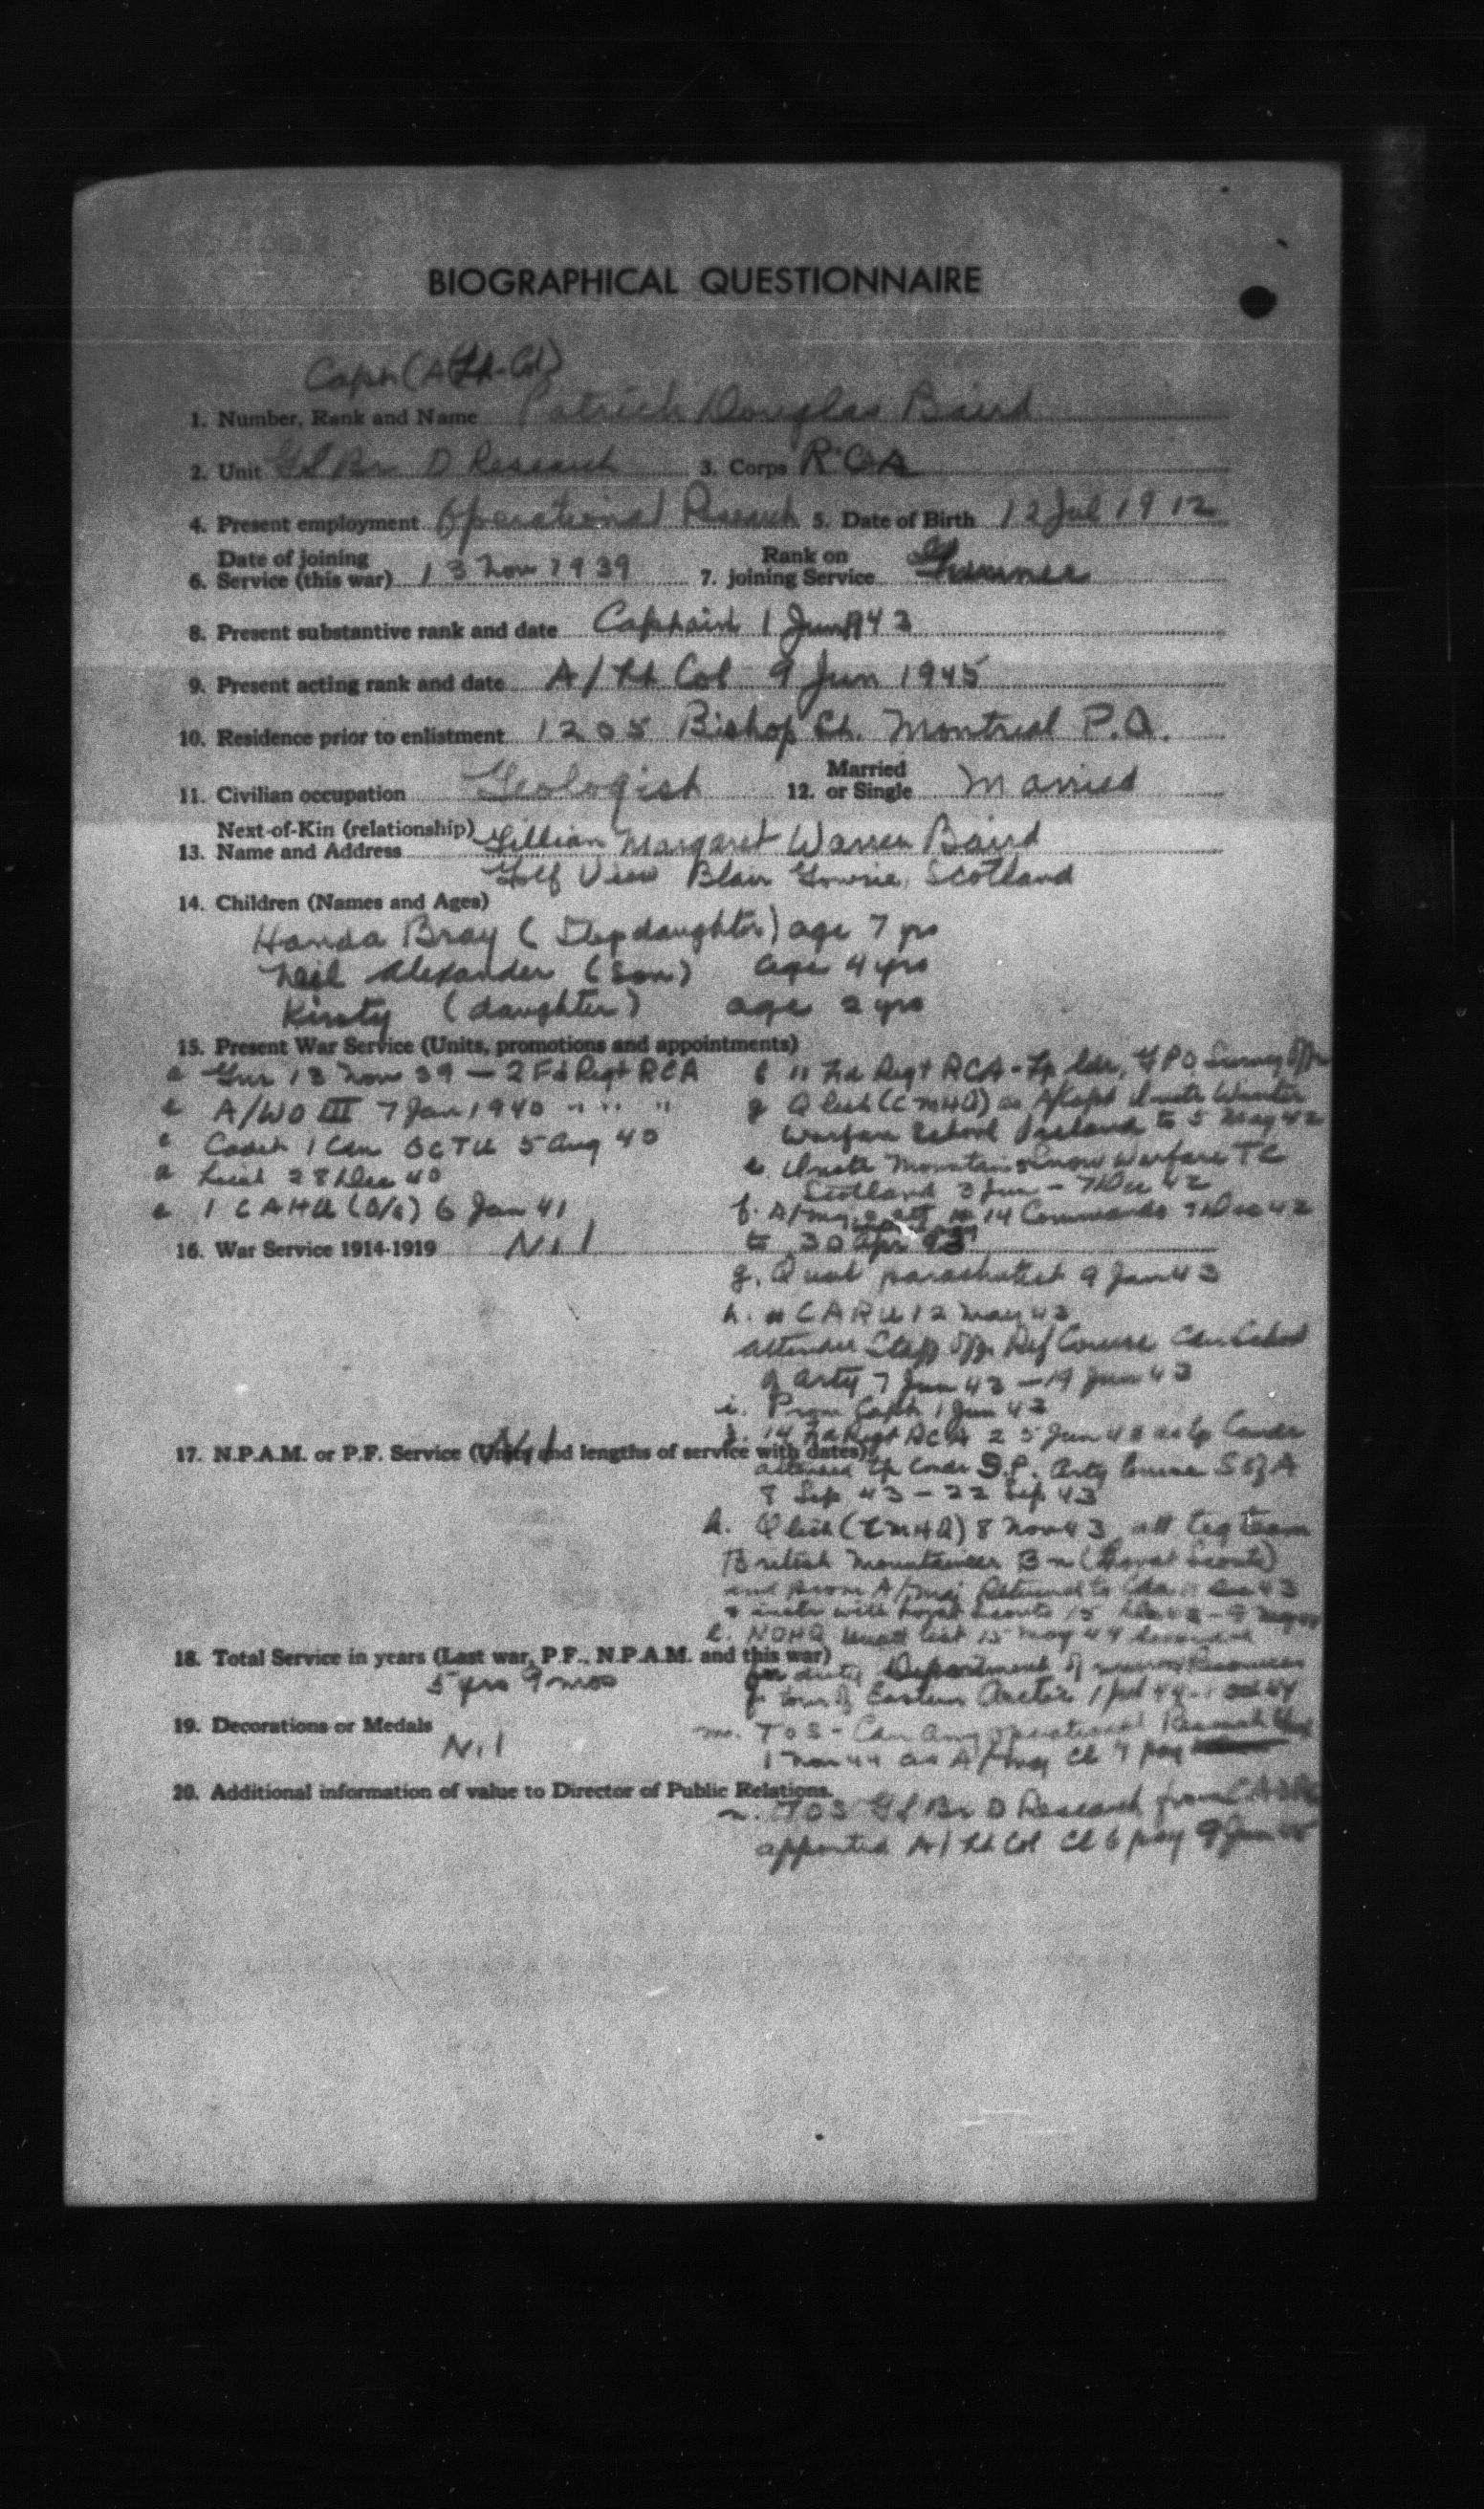 BIOGRAPHICAL QUESTIONNAIRE
Capt (A/Lt-Col)
1. Number, Rank and Name Patrick Douglas Baird
2. Unit GS Br D Research 3. Corps RCA
4. Present employment Operational Research 5. Date of Birth 12 Jul 1912
6. Date of joining Service (this war) 13 Nov 1939 7. Rank on joining Service Gunner
8. Present substantive rank and date Captain 1 Jun 43
9. Present acting rank and date A/Lt Col 9 Jun 1945
10. Residence prior to enlistment 1205 Bishop St. Montreal P.Q.
11. Civilian occupation Geologist 12. Married or Single Married
13. Next-of-Kin (relationship) Name and Address Gillian Margaret Warren Baird
Golf View Blair Gowrie, Scotland
14. Children (Names and Ages)
Handa Bray (Stepdaughter) age 7 yrs
Neil Alexander (Son) age 4 yrs
Kirsty (daughter) age 2 yrs
15. Present War Service (Units, promotions and appointments)
a Gnr 13 Nov 39 — 2 Fd Regt RCA
A/WO III 7 Jan 1940 " " "
c Cadet 1 Can OCTU 5 Aug 40
d Lieut 28 Dec 40
e 1 CAHU 6 Jan 41
16. War Service 1914-1919 Nil
11 Fd Regt RCA - Tp ldr, GPO, Survey Offr
(CMHQ) as A/Capt Winter
Warfare School Iceland to 5 May 42
Mountain & Snow Warfare TC
Scotland 3 Jun - 7 Dec 42
14 Commando 7 Dec 42
to 30 Apr 43
g. Qual parachutist 9 Jan 43
h. CARU 12 May 43
attended Staff Offr Ref Course Can School
of Arty 7 Jun 43 — 19 Jun 43
i. Prom Capt 1 Jun 43
j. 14 Fd Regt RCA 25 Jun 43 as Tp Comdr
17. N.P.A.M. or P.F. Service (Units and lengths of service with dates) Nil
attended Tp Comdr S.P. Arty Course S of A
8 Sep 43 — 22 Sep 43
k. (CMHQ) 8 Nov 43 att team
British Mountaineer Bn (Lovat Scouts)
and prom A/Maj Returned to Cda
with Lovat Scouts 15
l. NDHQ list 15 May 44
18. Total Service in years (Last war, P.F., N.P.A.M. and this war)
5 yrs 9 mos
for duty Department of Resources
tour of Eastern Arctic 1 Jul 44
19. Decorations or Medals
Nil
m. TOS - Can Army Operational Research
1 Nov 44 as A/Maj Cl 7 pay
20. Additional information of value to Director of Public Relations.
n. TOS GS Br D Research from
appointed A/Lt Col Cl 6 pay 9 Jun 45